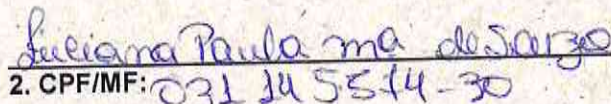 Luciana Paula ma de Sarzo
2. CPF/MF: 031 145514-30